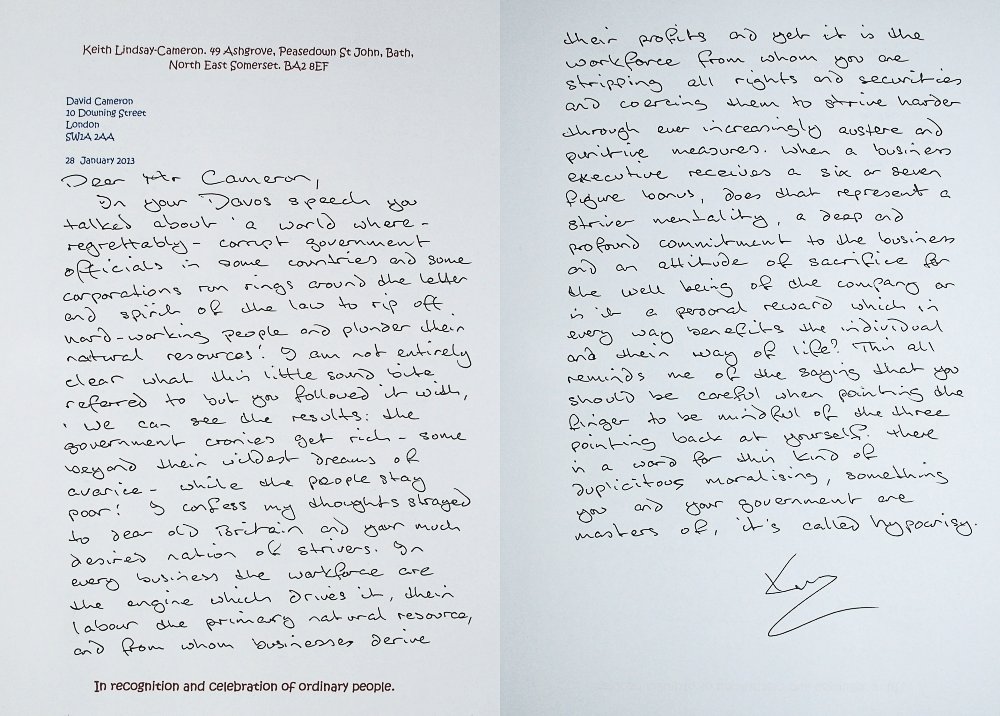 Keith Lindsay-Cameron. 49 Ashgrove, Peasedown St John, Bath,
North East Somerset. BA2 8EF
David Cameron
10 Downing Street
London
SW1A 2AA
28 January 2013
Dear Mr Cameron,
In your Davos speech you
talked about 'a world where -
regrettably - corrupt government
officials in some countries and some
corporations run rings around the letter
and spirit of the law to rip off
hard-working people and plunder their
natural resources'. I am not entirely
clear what this little sound bite
referred to but you followed it with,
'We can see the results: the
government cronies get rich - some
beyond their wildest dreams of
avarice - while the people stay
poor'. I confess my thoughts strayed
to dear old Britain and your much
desired nation of strivers. In
every business the workforce are
the engine which drives it, their
labour the primary natural resource,
and from whom businesses derive
In recognition and celebration of ordinary people.
their profits and yet it is the
workforce from whom you are
stripping all rights and securities
and coercing them to strive harder
through ever increasingly austere and
punitive measures. When a business
executive receives a six or seven
figure bonus, does that represent a
striver mentality, a deep and
profound commitment to the business
and an attitude of sacrifice for
the well being of the company or
is it a personal reward which in
every way benefits the individual
and their way of life? This all
reminds me of the saying that you
should be careful when pointing the
finger to be mindful of the three
pointing back at yourself. There
is a word for this kind of
duplicitous moralising, something
you and your government are
masters of, it's called hypocrisy.